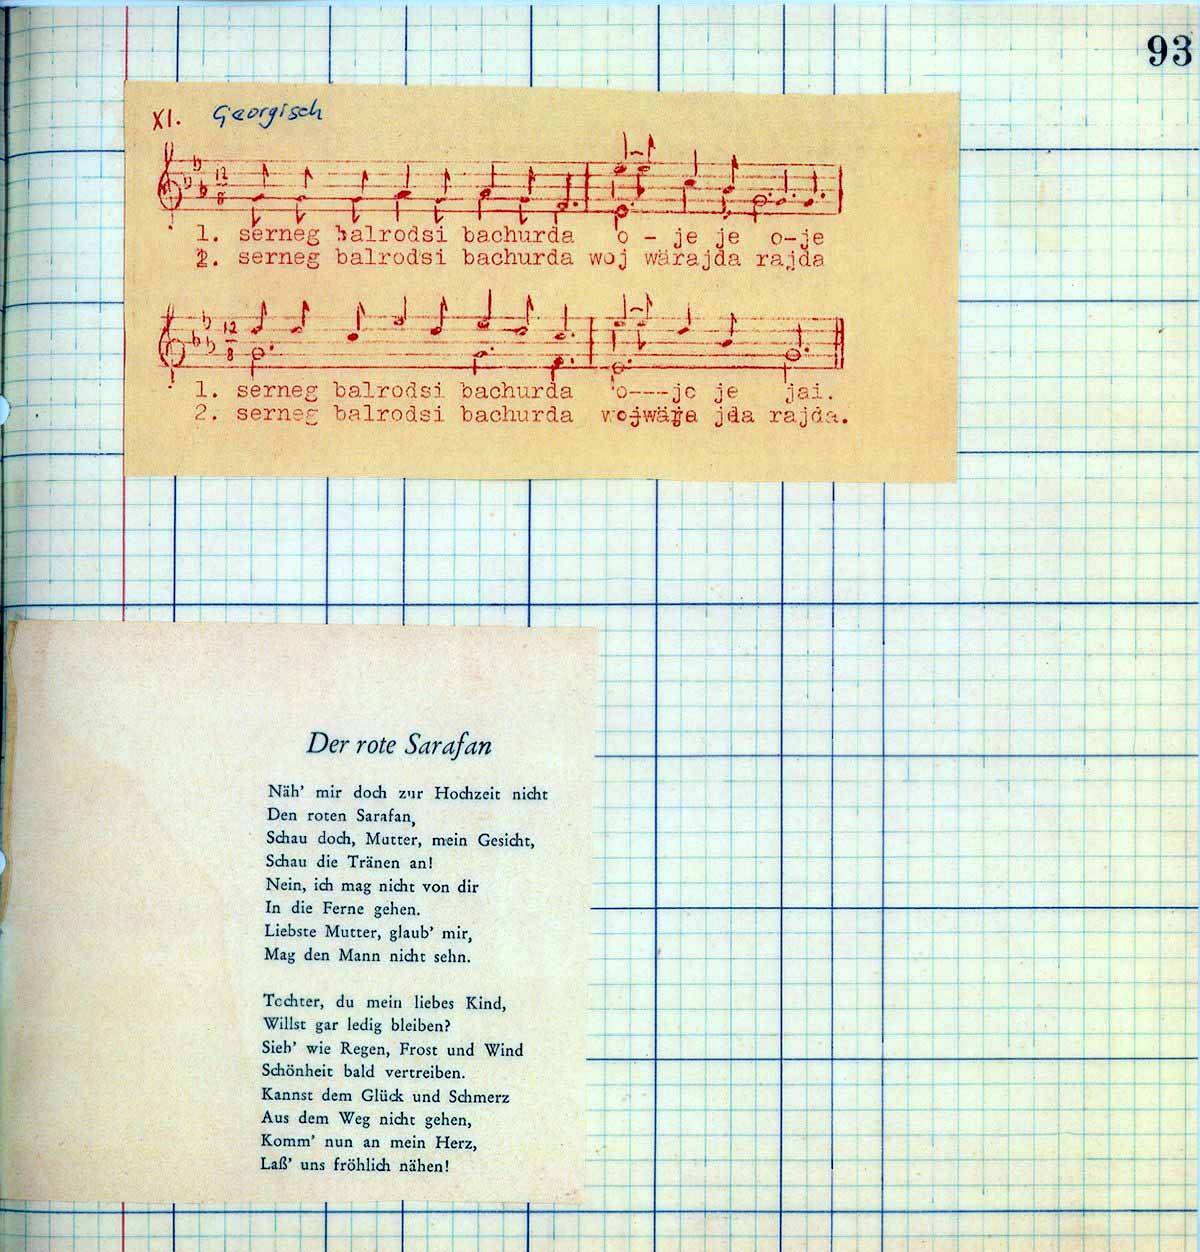 93
XI. Georgisch
12
8
1. serneg balrodsi bachurda o - je je o-je
2. serneg balrodsi bachurda woj wärajda rajda
12
8
1. serneg balrodsi bachurda o---je je jai.
2. serneg balrodsi bachurda wojwära jda rajda.
Der rote Sarafan
Näh' mir doch zur Hochzeit nicht
Den roten Sarafan,
Schau doch, Mutter, mein Gesicht,
Schau die Tränen an!
Nein, ich mag nicht von dir
In die Ferne gehen.
Liebste Mutter, glaub' mir,
Mag den Mann nicht sehn.
Tochter, du mein liebes Kind,
Willst gar ledig bleiben?
Sieh' wie Regen, Frost und Wind
Schönheit bald vertreiben.
Kannst dem Glück und Schmerz
Aus dem Weg nicht gehen,
Komm' nun an mein Herz,
Laß' uns fröhlich nähen!